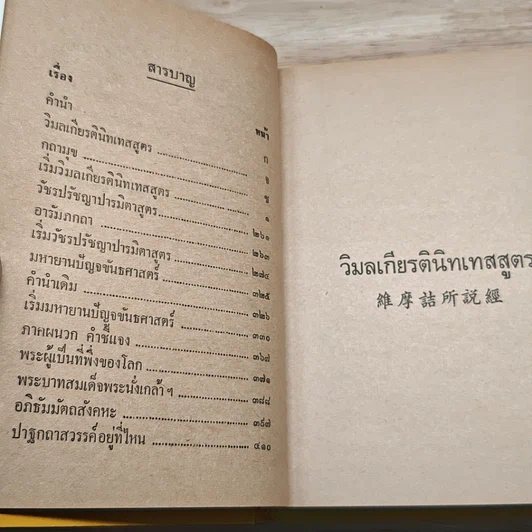 สารบาญ
เรื่อง
หน้า
คำนำ ก
วิมลเกียรตินิทเทสสูตร ข
กถามุข ฃ
เริ่มวิมลเกียรตินิทเทสสูตร ๑
วัชรปรัชญาปารมิตาสูตร ๒๖๑
อารัมภกถา ๒๖๓
เริ่มวัชรปรัชญาปารมิตาสูตร ๒๗๔
มหายานปัญจขันธศาสตร์ ๓๒๕
คำนำเดิม ๓๒๖
เริ่มมหายานปัญจขันธศาสตร์ ๓๓๐
ภาคผนวก คำชี้แจง ๓๖๗
พระผู้เป็นที่พึ่งของโลก ๓๗๑
พระบาทสมเด็จพระนั่งเกล้าฯ ๓๘๘
อภิธัมมัตถสังคหะ ๓๙๗
ปาฐกถาสวรรค์อยู่ที่ไหน ๔๑๐
วิมลเกียรตินิทเทสสูตร
維摩詰所説經